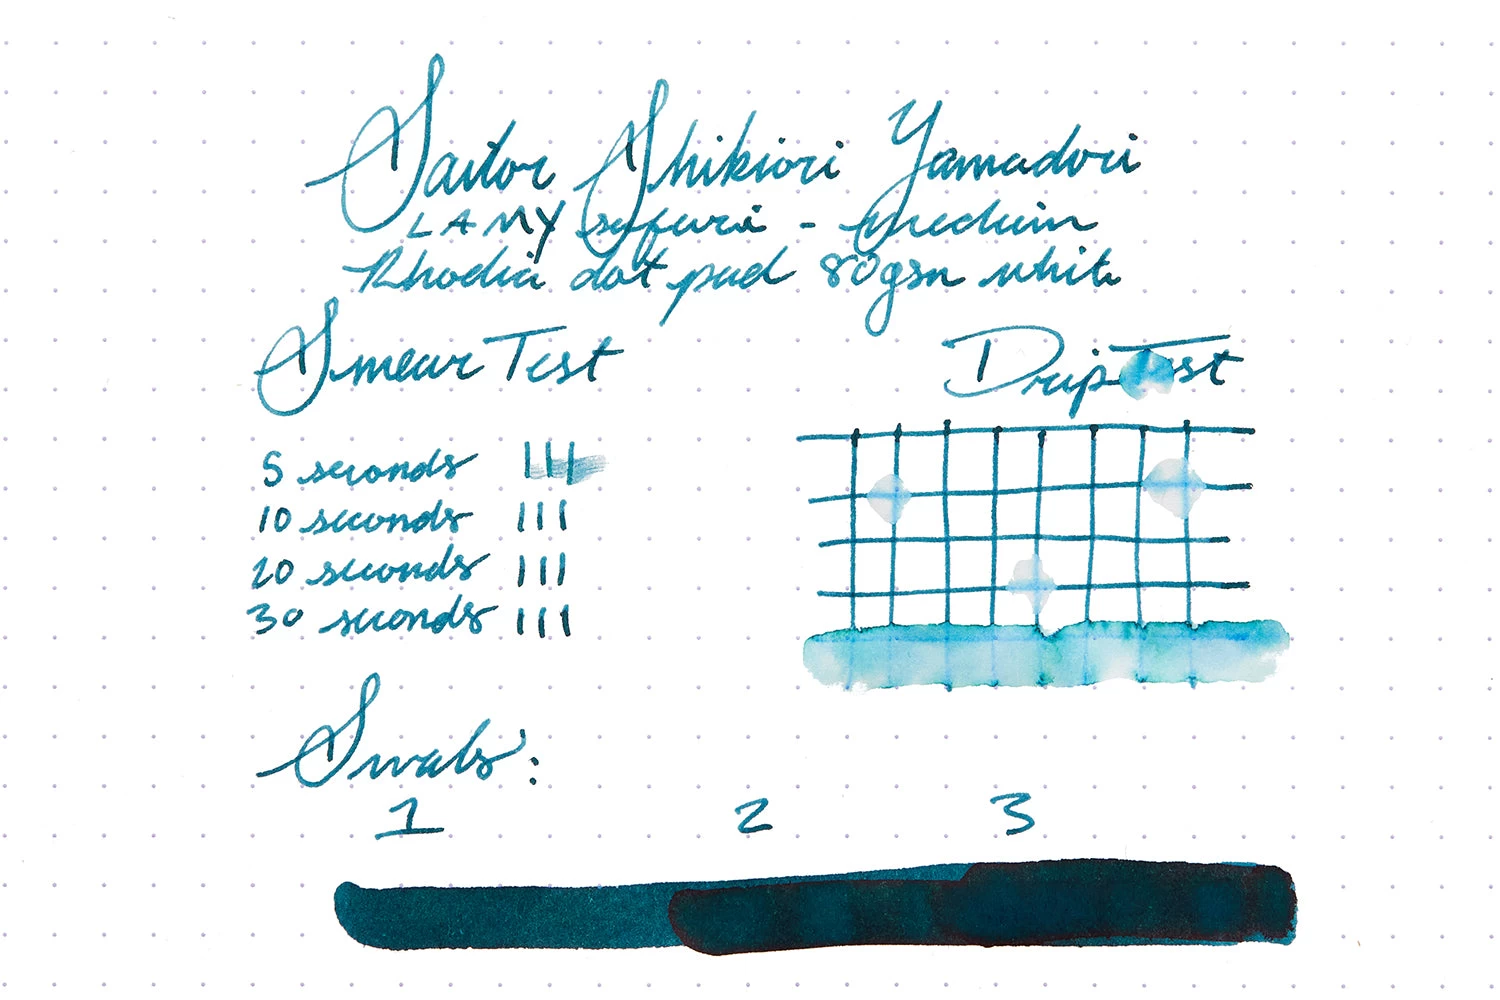 Sailor Shikiori Yamadori
LAMY safari - medium
Rhodia dot pad 80gsm white
Smear Test
Drip Test
5 seconds
10 seconds
20 seconds
30 seconds
Swabs:
1 2 3